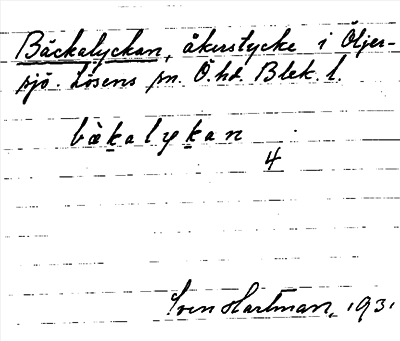 Bäckalyckan, åkerstycke i Öljer-
sjö. Lösens sn. Ö. hd. Blek. l.
bàkalykan
4
Sven Hartman, 1931